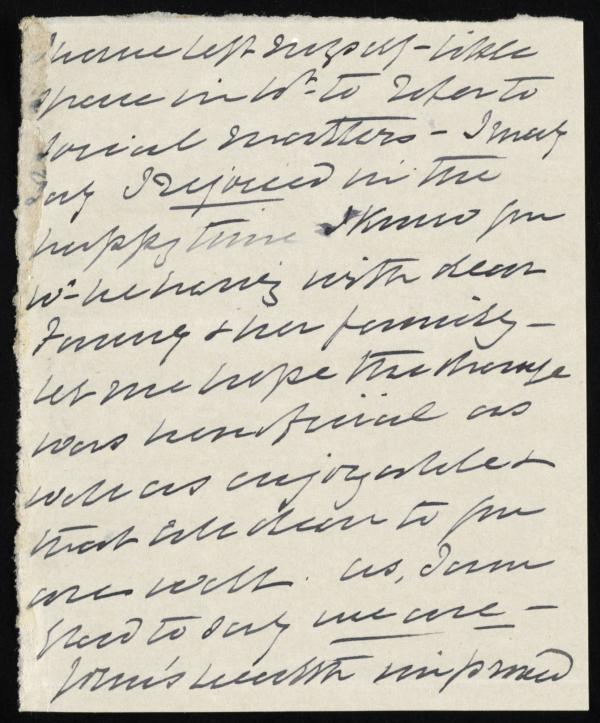 have left myself - little
space in wh. to refer to
social matters - I may
say I rejoiced in the
happy time I knew you
wd. be having with dear
Fanny & her family -
let me hope the change
was beneficial as
well as enjoyable &
that all dear to you
are well. as, I am
glad to say we are -
John's health improved